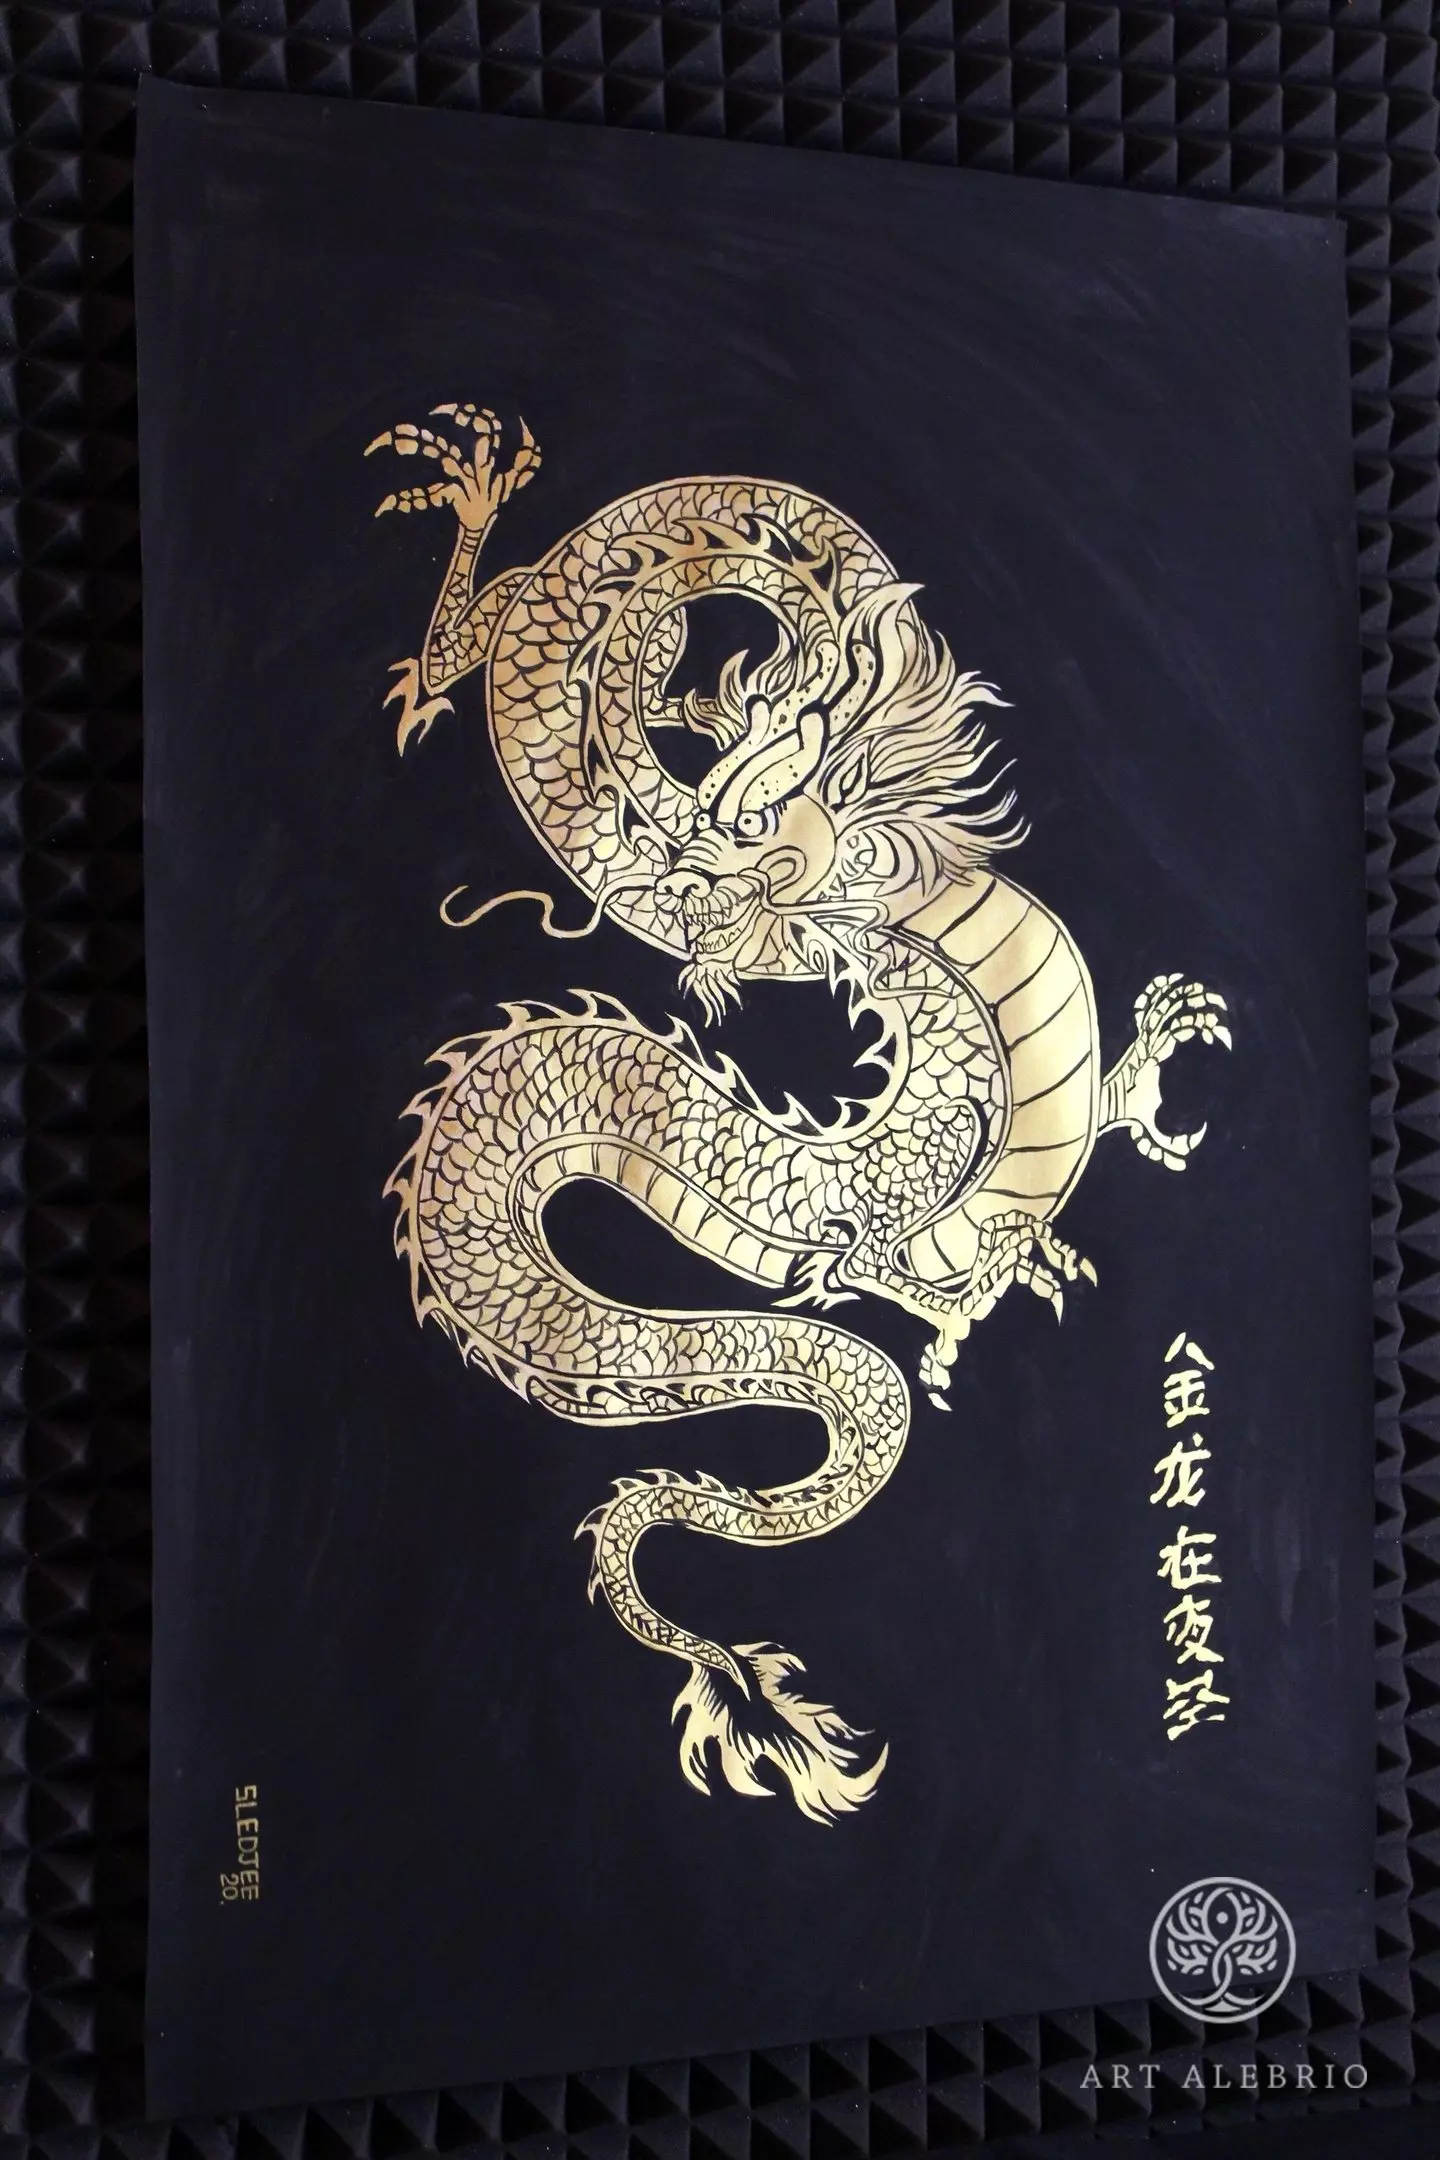 金龙在夜
SLEDJEE
20.
ART ALEBRIO